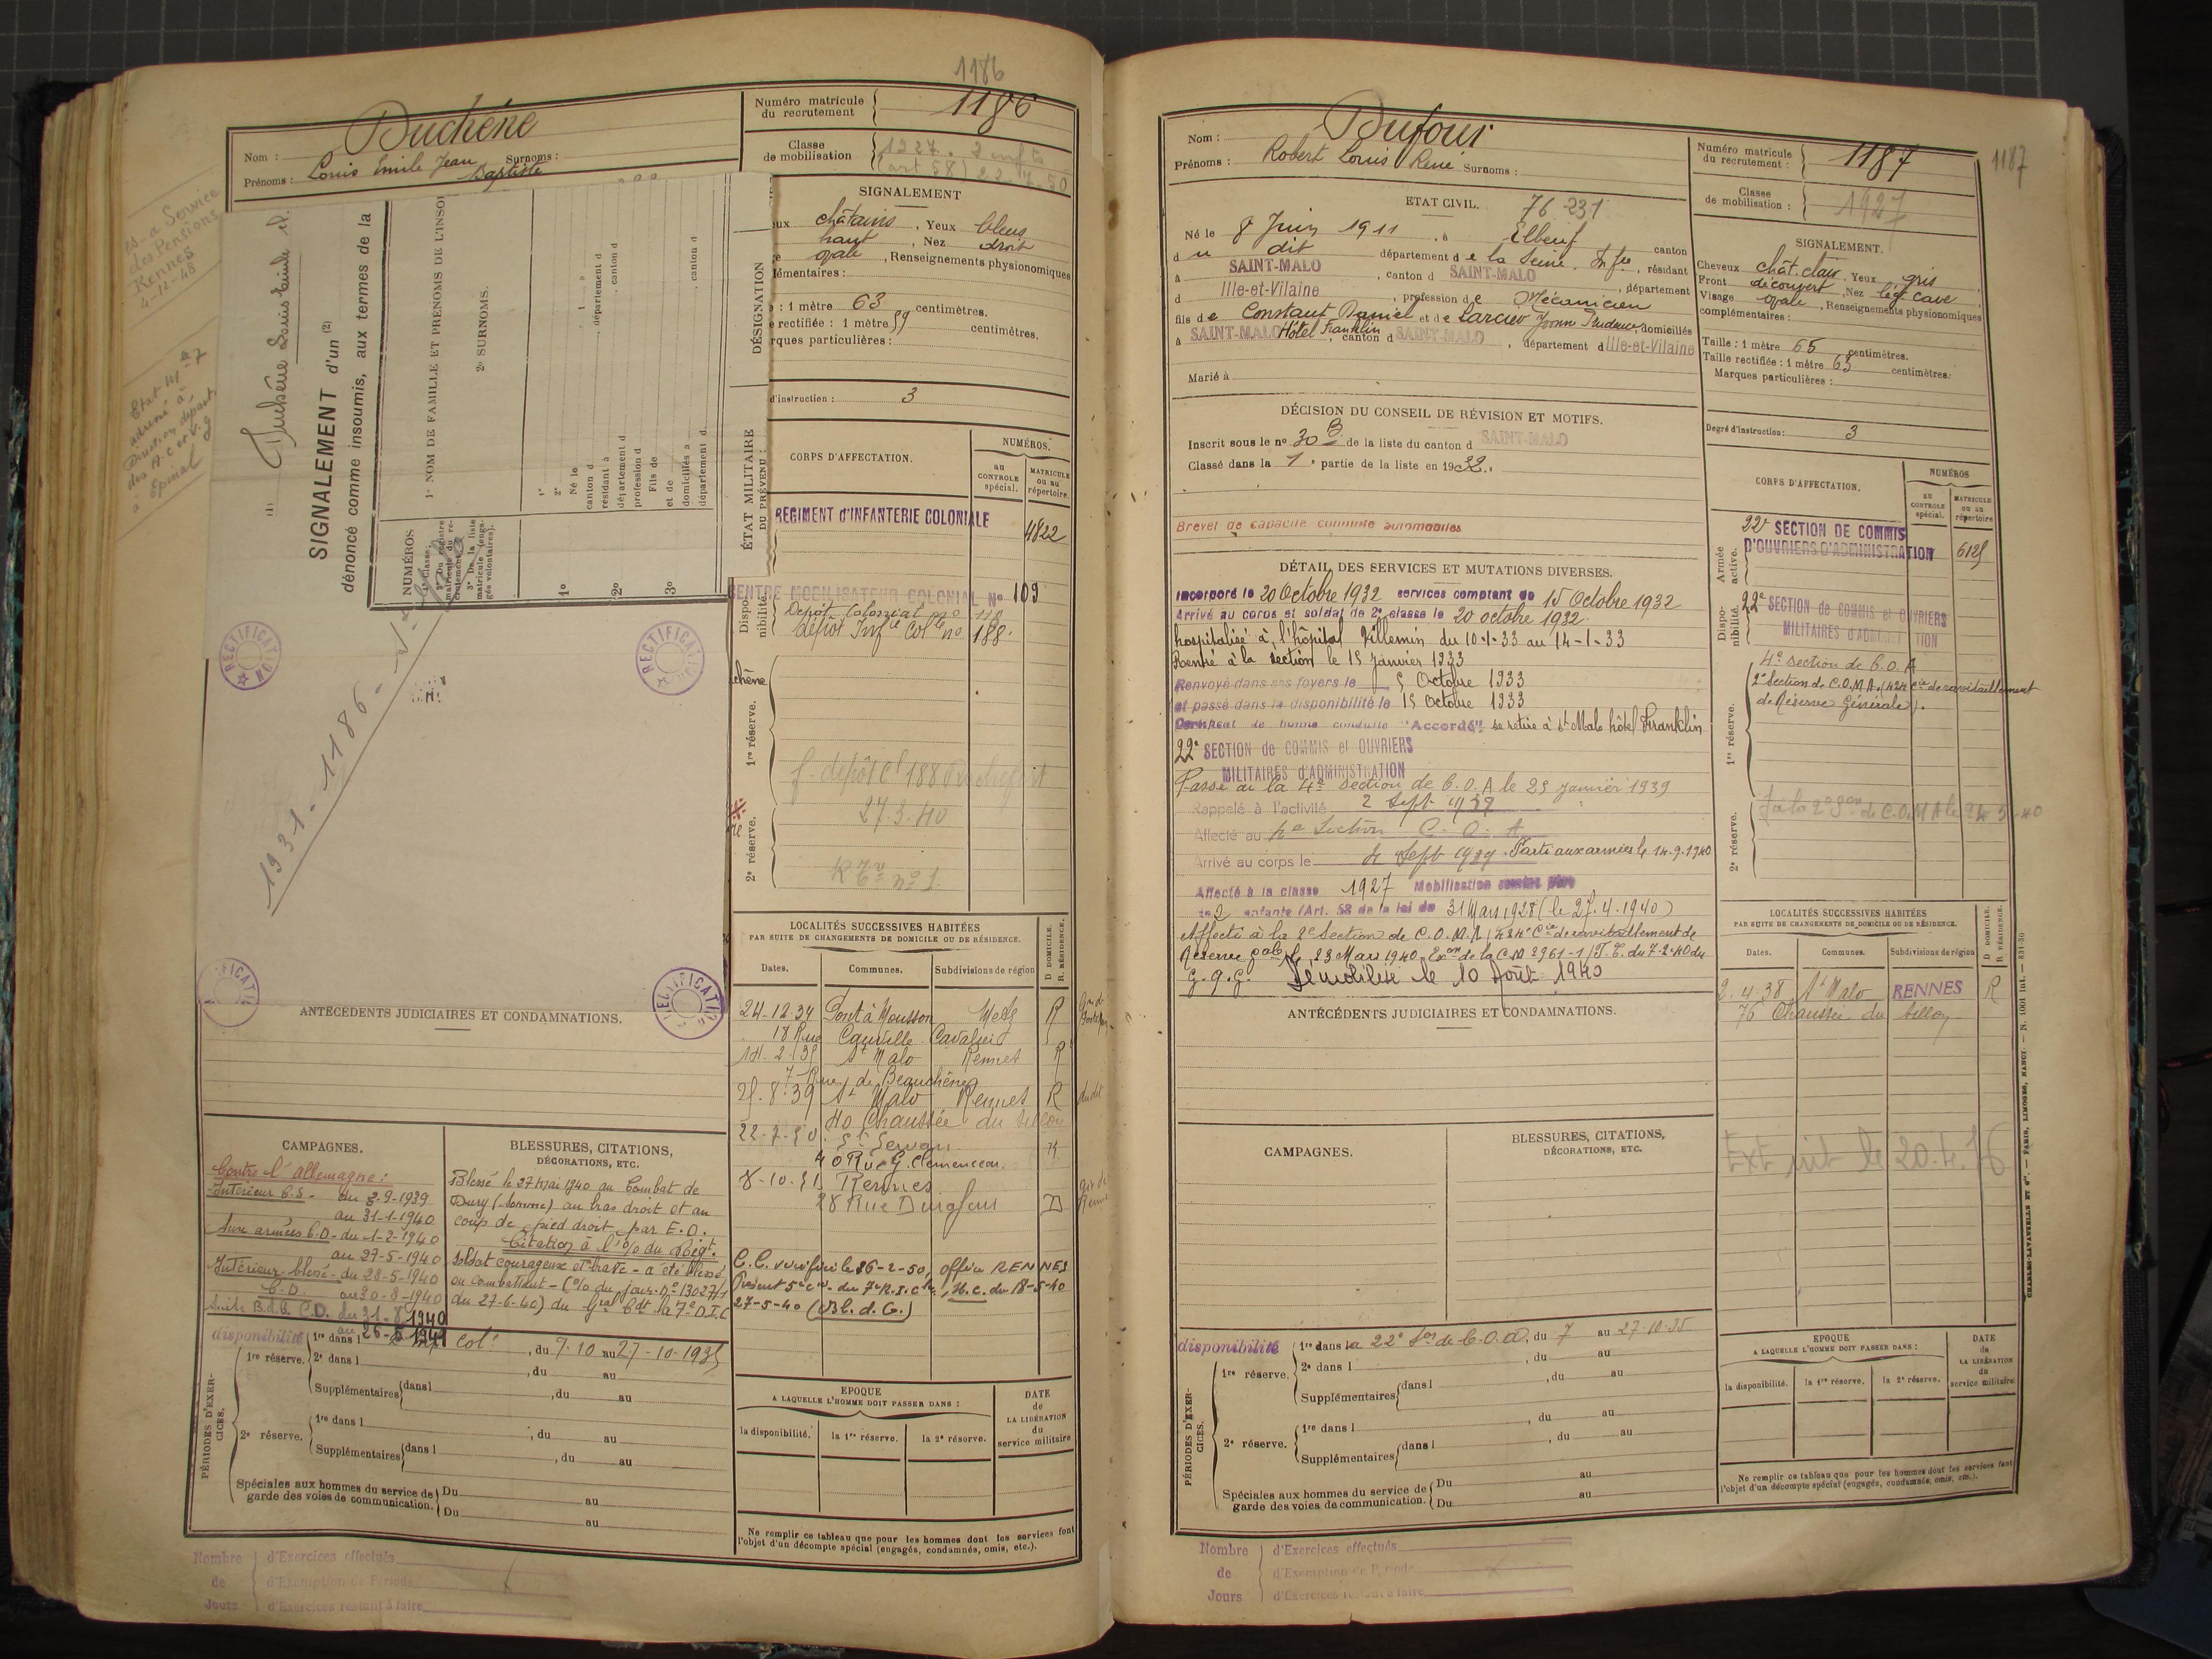 1186
Nom : Duchêne
Prénoms : Louis Emile Jean Baptiste Surnoms :
Numéro matricule du recrutement 1186
Classe de mobilisation 1927. 2 enfts
(art 58) 22-7-50
es-a Service
des Pensions
Rennes
4-12-48
Etat
adressé à
des A.C et V.g
à Epinal
(1)
SIGNALEMENT d'un (2)
dénoncé comme insoumis, aux termes de la
1° NOM DE FAMILLE ET PRÉNOMS DE L'INSO
2° SURNOMS.
1°
2°
Né le
canton d
résidant à
département d
profession d
Fils de
et de
domiciliés à
département d
, département d
, canton d
, canton d
NUMÉROS
1° Classe;
2° Du registre matricule du recrutement;
3° De la liste matricule (engagés volontaires).
1°
2°
3°
DÉSIGNATION
ÉTAT MILITAIRE DU PRÉVENU :
RECTIFICATION
RECTIFICATION
1931-1186-
SIGNALEMENT
eux châtains, Yeux bleus
haut, Nez droit
e ovale, Renseignements physionomiques
lémentaires :
e : 1 mètre 63 centimètres.
e rectifiée : 1 mètre centimètres.
rques particulières :
d'instruction : 3
CORPS D'AFFECTATION.
NUMÉROS.
au CONTROLE spécial.
MATRICULE ou au répertoire.
REGIMENT d'INFANTERIE COLONIALE
4822
Disponibilité.
CENTRE MOBILISATEUR COLONIAL N° 109
Dépôt Colonial no 118
dépôt Infie Colle no 188.
chêne
1re réserve.
f. dépôt cl 188 Rochefort
27.3.40
2e réserve.
LOCALITÉS SUCCESSIVES HABITÉES
PAR SUITE DE CHANGEMENTS DE DOMICILE OU DE RÉSIDENCE.
D DOMICILE.
R. RÉSIDENCE.
Dates. Communes. Subdivisions de région
24-12-34 Pont à Mousson Metz R
18 Rue Camille Cavalier
18-2-35 St Malo Rennes R
7 Rue de Beauchêne
25.8.39 St Malo Rennes R
40 Chaussée du Sillon
22-7-50. St Servan R
40 Rue G. Clemenceau.
8-10-51 Rennes
28 Rue D
ANTÉCÉDENTS JUDICIAIRES ET CONDAMNATIONS.
CAMPAGNES.
Contre l'Allemagne :
Intérieur C.S. - du 2-9-1939
au 31-1-1940
Aux armées C.D - du 1-2-1940
au 27-5-1940
Intérieur blessé - du 28-5-1940
C.D. au 30-8-1940
Suite B.d.G. C.D. du 31-8-1940
au 26-5-1941
BLESSURES, CITATIONS,
DÉCORATIONS, ETC.
Blessé le 27 mai 1940 au Combat de
Dury (Somme) au bras droit et au
coup de pied droit par E.O.
Citation à l'O/ du Régt.
Soldat courageux et brave - a été blessé
en combattant - (O/ du jour. no 13027/1
du 27-6-40) du Gral Cdt la 7e D.I.C
C.C. vérifiée le 26-2-50, office RENNES
Présent 5e Cie du 7e R.I.C. H.C. du 18-5-40
27-5-40 (Bl. d. G.)
PÉRIODES D'EXERCICES.
disponibilité 1re dans l col., du 7-10 au 27-10-1935
1re réserve. 2e dans l , du au
Supplémentaires dans l , du au
2e réserve. 1re dans l , du au
Supplémentaires dans l , du au
Spéciales aux hommes du service de garde des voies de communication. Du au
Du au
EPOQUE
A LAQUELLE L'HOMME DOIT PASSER DANS :
la disponibilité. la 1re réserve. la 2e réserve.
DATE de LA LIBÉRATION du service militaire
Ne remplir ce tableau que pour les hommes dont les services font
l'objet d'un décompte spécial (engagés, condamnés, omis, etc.).
Nombre de Jours
d'Exercices effectués
d'Exemption de Période
d'Exercices restant à faire
Nom : Dufour
Prénoms : Robert Louis René Surnoms :
Numéro matricule du recrutement : 1187
1187
Classe de mobilisation : 1927
ETAT CIVIL. 76 231
Né le 8 Juin 1911, à Elbeuf canton
d u dit département d e la Seine. Infre, résidant
à SAINT-MALO, canton d SAINT-MALO, département
d Ille-et-Vilaine, profession d e Mécanicien
fils d e Constant Daniel et d e Larcier domiciliés
à SAINT-MALO Hôtel Franklin, canton d SAINT-MALO, département d Ille-et-Vilaine
Marié à
SIGNALEMENT.
Cheveux chât. clair, Yeux gris
Front découvert, Nez lég cave
Visage ovale, Renseignements physionomiques
complémentaires :
Taille : 1 mètre 65 centimètres.
Taille rectifiée : 1 mètre 63 centimètres.
Marques particulières :
Degré d'instruction : 3
DÉCISION DU CONSEIL DE RÉVISION ET MOTIFS.
Inscrit sous le no 30 B de la liste du canton d SAINT-MALO
Classé dans la 1e partie de la liste en 1932.
Brevet de capacité conduite automobiles
DÉTAIL DES SERVICES ET MUTATIONS DIVERSES.
Incorporé le 20 Octobre 1932 services comptant du 15 Octobre 1932
Arrivé au corps et soldat de 2e classe le 20 octobre 1932.
hospitalisé à l'hôpital Villemin du 10-1-33 au 14-1-33
Rentré à la section le 15 janvier 1933
Renvoyé dans ses foyers le 5 Octobre 1933
et passé dans la disponibilité le 15 Octobre 1933
Certificat de bonne conduite "Accordé" se retire à St Malo hôtel Franklin
22e SECTION de COMMIS et OUVRIERS
MILITAIRES d'ADMINISTRATION
Passé à la 4e Section de C.O.A le 25 janvier 1939
Rappelé à l'activité 2 Sept 1939
Affecté au 4e Section C.O.A
Arrivé au corps le 4 Sept 1939. Parti aux armées le 14.9.1940
Affecté à la classe 1927 Mobilisation comme père
de 2 enfants (Art. 58 de la loi du 31 Mars 1928 (le 27.4.1940)
Affecté à la 2e Section de C.O.M.A, (424e Cie de ravitaillement de
Réserve Gale) le 23 Mars 1940 Exon de la C.M 2961-1/T.E. du 7-2-40 du
G.Q.G. Démobilisé le 10 Août 1940
ANTÉCÉDENTS JUDICIAIRES ET CONDAMNATIONS.
CORPS D'AFFECTATION.
NUMÉROS
au CONTROLE spécial.
MATRICULE ou au répertoire
Armée active.
22e SECTION DE COMMIS
D'OUVRIERS D'ADMINISTRATION
Disponibilité.
22e SECTION de COMMIS et OUVRIERS
MILITAIRES d'ADMINISTRATION
1re réserve.
4e section de C.O.A
2e Section de C.O.M.A. (424e Cie de ravitaillement
de Réserve Générale).
2e réserve.
LOCALITÉS SUCCESSIVES HABITÉES
PAR SUITE DE CHANGEMENTS DE DOMICILE OU DE RÉSIDENCE.
D DOMICILE.
R. RÉSIDENCE.
Dates. Communes. Subdivisions de région
2.4.38 St Malo RENNES R
76 Chaussée du Sillon
CAMPAGNES.
BLESSURES, CITATIONS,
DÉCORATIONS, ETC.
PÉRIODES D'EXERCICES.
disponibilité 1re dans la 22e Son de C.O.A, du 7 au 27-10-35
1re réserve. 2e dans l , du au
Supplémentaires dans l , du au
2e réserve. 1re dans l , du au
Supplémentaires dans l , du au
Spéciales aux hommes du service de garde des voies de communication. Du au
Du au
EPOQUE
A LAQUELLE L'HOMME DOIT PASSER DANS :
la disponibilité. la 1re réserve. la 2e réserve.
DATE de LA LIBÉRATION du service militaire.
Ne remplir ce tableau que pour les hommes dont les services font
l'objet d'un décompte spécial (engagés, condamnés, omis, etc.).
CHARLES-LAVAUZELLE ET Cie. — PARIS, LIMOGES, NANCY. — N. 1001 int. — 831-30
Nombre de Jours
d'Exercices effectués
d'Exemption de Période
d'Exercices restant à faire